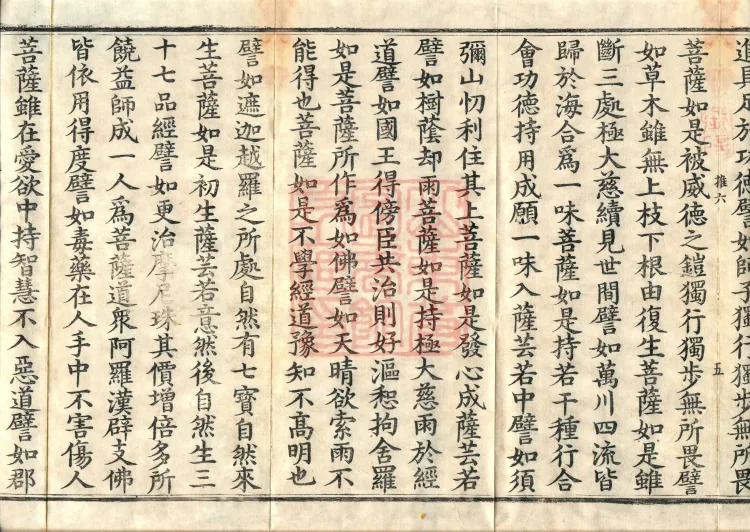 進具足於功德譬如師子獨行獨步無所畏
菩薩如是被威德之鎧獨行獨步無所畏譬
推六
五
如草木雖無上枝下根由復生菩薩如是雖
斷三處極大慈續見世間譬如萬川四流皆
歸於海合爲一味菩薩如是持若干種行合
會功德持用成願一味入薩芸若中譬如須
彌山忉利住其上菩薩如是發心成薩芸若
譬如樹蔭却雨菩薩如是持極大慈雨於經
道譬如國王得傍臣共治則好漚惒拘舍羅
如是菩薩所作爲如佛譬如天晴欲索雨不
能得也菩薩如是不學經道豫知不高明也
譬如遮迦越羅之所處自然有七寶自然來
生菩薩如是初生薩芸若意然後自然生三
十七品經譬如更治摩尼珠其價增倍多所
饒益師成一人爲菩薩道衆阿羅漢辟支佛
皆依用得度譬如毒藥在人手中不害傷人
菩薩雖在愛欲中持智慧不入惡道譬如郡